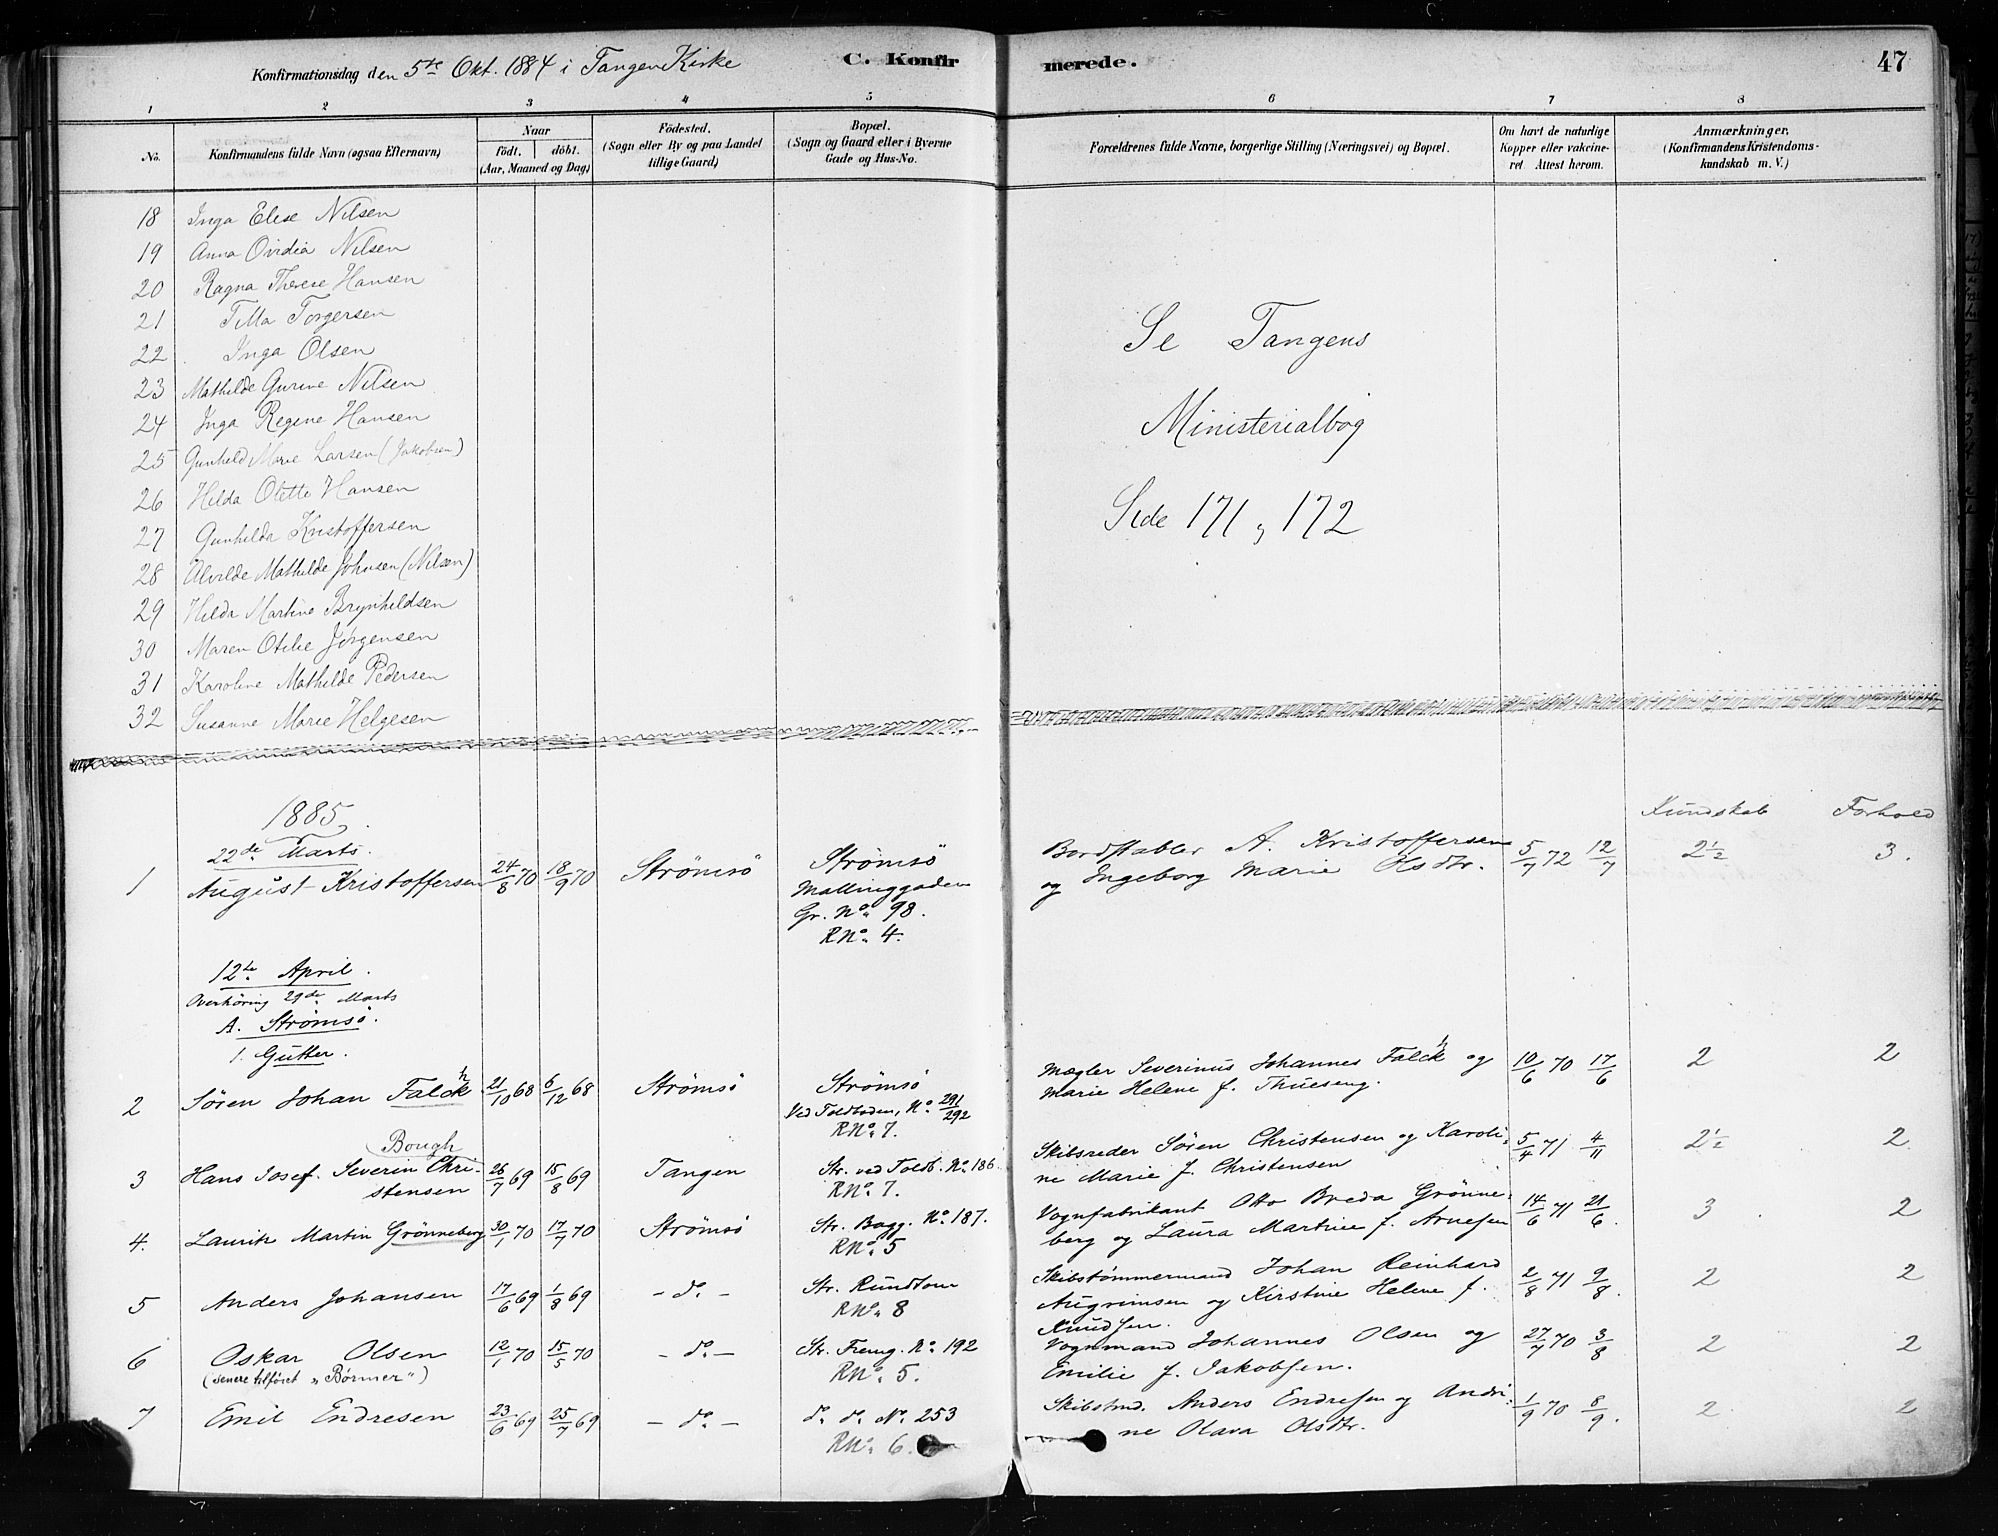 Konfirmationsdag den 5te Okt. 1884 i Tangen Kirke
C. Konfirmerede.
47
1 2 3 4 5 6 7 8
No.
Konfirmandens fulde Navn (ogsaa Efternavn)
Naar
födt. döbt.
(Aar, Maaned og Dag)
Födested.
(Sogn eller By og paa Landet
tillige Gaard)
Bopæl.
(Sogn og Gaard eller i Byerne
Gade og Hus-No.
Forældrenes fulde Navne, borgerlige Stilling (Næringsvei) og Bopæl.
Om havt de naturlige
Kopper eller vakcine-
ret Attest herom.
Anmærkninger.
(Konfirmandens Kristendoms-
kundskab m. V.)
18 Inga Elise Nilsen
19 Anna Ovidia Nilsen
20 Ragna Therese Hansen
21 Tilla Torgersen
22 Inga Olsen
23 Mathilde Gurine Nilsen
24 Inga Regine Hansen
25 Gunhild Marie Larsen (Jakobsen)
26 Hilda Olette Hansen
27 Gunhilda Kristoffersen
28 Alvilde Mathilde Johnsen (Nilsen)
29 Hilda Martine Brynhildsen
30 Maren Otilie Jørgensen
31 Karoline Mathilde Pedersen
32 Susanne Marie Helgesen
Se Tangens
Ministerialbog
Side 171, 172
1885
22de Marts.
Kundskab Forhold
1 August Kristoffersen 24/8 70 18/9 70 Strömsö
Strömsö
Mallinggaden
Gr. No. 98.
RNo. 4.
Bordstabler A. Kristoffersen
og Ingeborg Marie Olsdtr.
5/7 72 12/7 2½ 3.
12te April.
Overhöring 29de Marts
A. Strömsö.
1. Gutter.
2 Sören Johan Falck 21/10 68 6/12 68 Strömsö
Strömsö
Ved Toldboden, No. 291/292
RNo. 7.
Mægler Severinus Johannes Falck og
Marie Helene f. Thuesen.
10/6 70 17/6 2 2
Bough
3 Hans Josef. Severin Chri-
stensen
26/7 69 15/8 69 Tangen
Str. ved Toldb. No. 186.
RNo. 7.
Skibsreder Sören Christensen og Karoli-
ne Marie f. Christensen
5/4 71 4/11 2½ 2
4. Laurik Martin Grönneberg 30/1 70 17/7 70 Strömsö
Str. Bagg. No. 187.
RNo. 5
Vognfabrikant Otto Breda Grönne-
berg og Laura Martine f. Arnesen
14/6 71 21/6. 3 2
5 Anders Johansen 17/6 69 1/8 69 - do. -
Str. Rundtom
RNo. 8
Skibstømmermand Johan Reinhard
Augrimsen og Kirstine Helene f.
Knudsen.
2/8 71 9/8. 2 2
6 Oskar Olsen 12/1 70 15/5 70 - do. -
(senere tilføiet "Börmer")
Str. Fremg. No. 192
RNo. 5.
Vognmand Johannes Olsen og
Emilie f. Jakobsen.
27/7 70 3/8 2 2
7 Emil Endresen 23/6 69 25/7 69 - do. -
do. do. No. 253
RNo. 6.
Skibstmd. Anders Endresen og Andri-
ne Olava Olsdtr.
1/9 70 8/9. 2 2